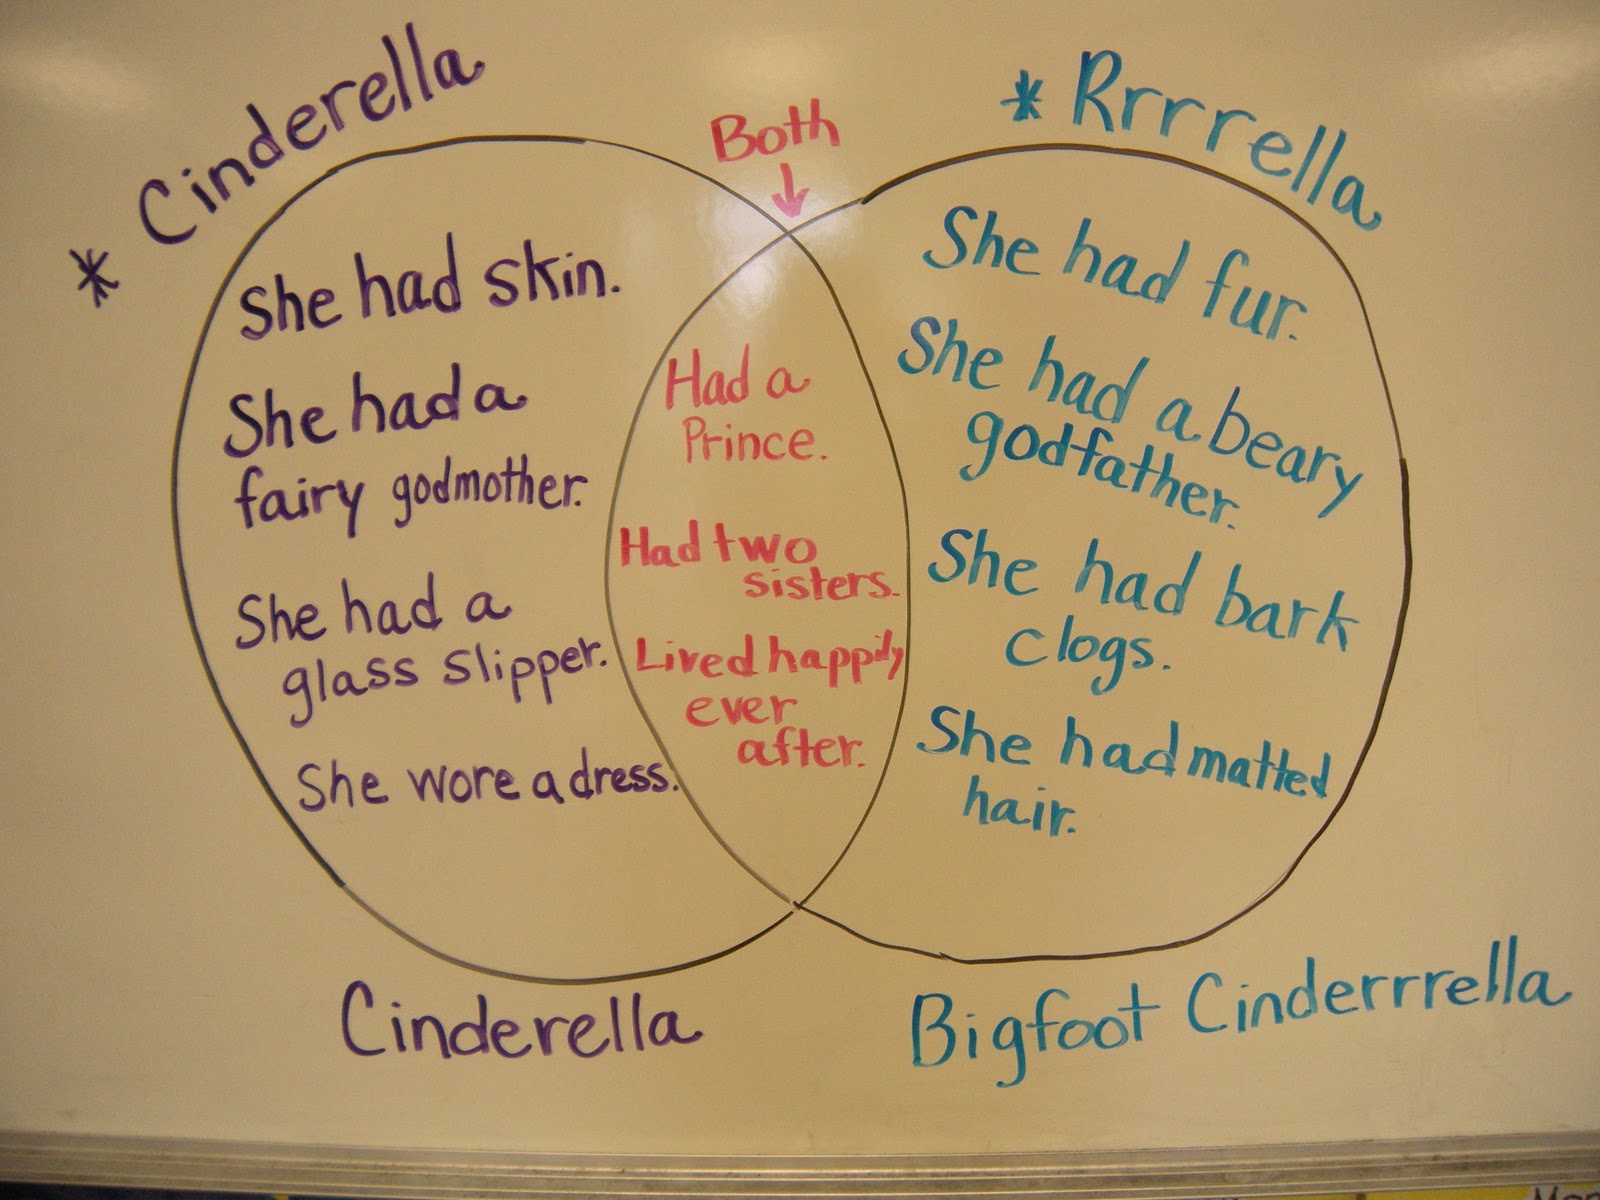 * Cinderella
Both
* Rrrrella
She had skin.
She had a
fairy godmother.
She had a
glass slipper.
She wore a dress.
Had a
Prince.
Had two
sisters.
Lived happily
ever
after.
She had fur.
She had a beary
godfather.
She had bark
clogs.
She had matted
hair.
Cinderella
Bigfoot Cinderrrella